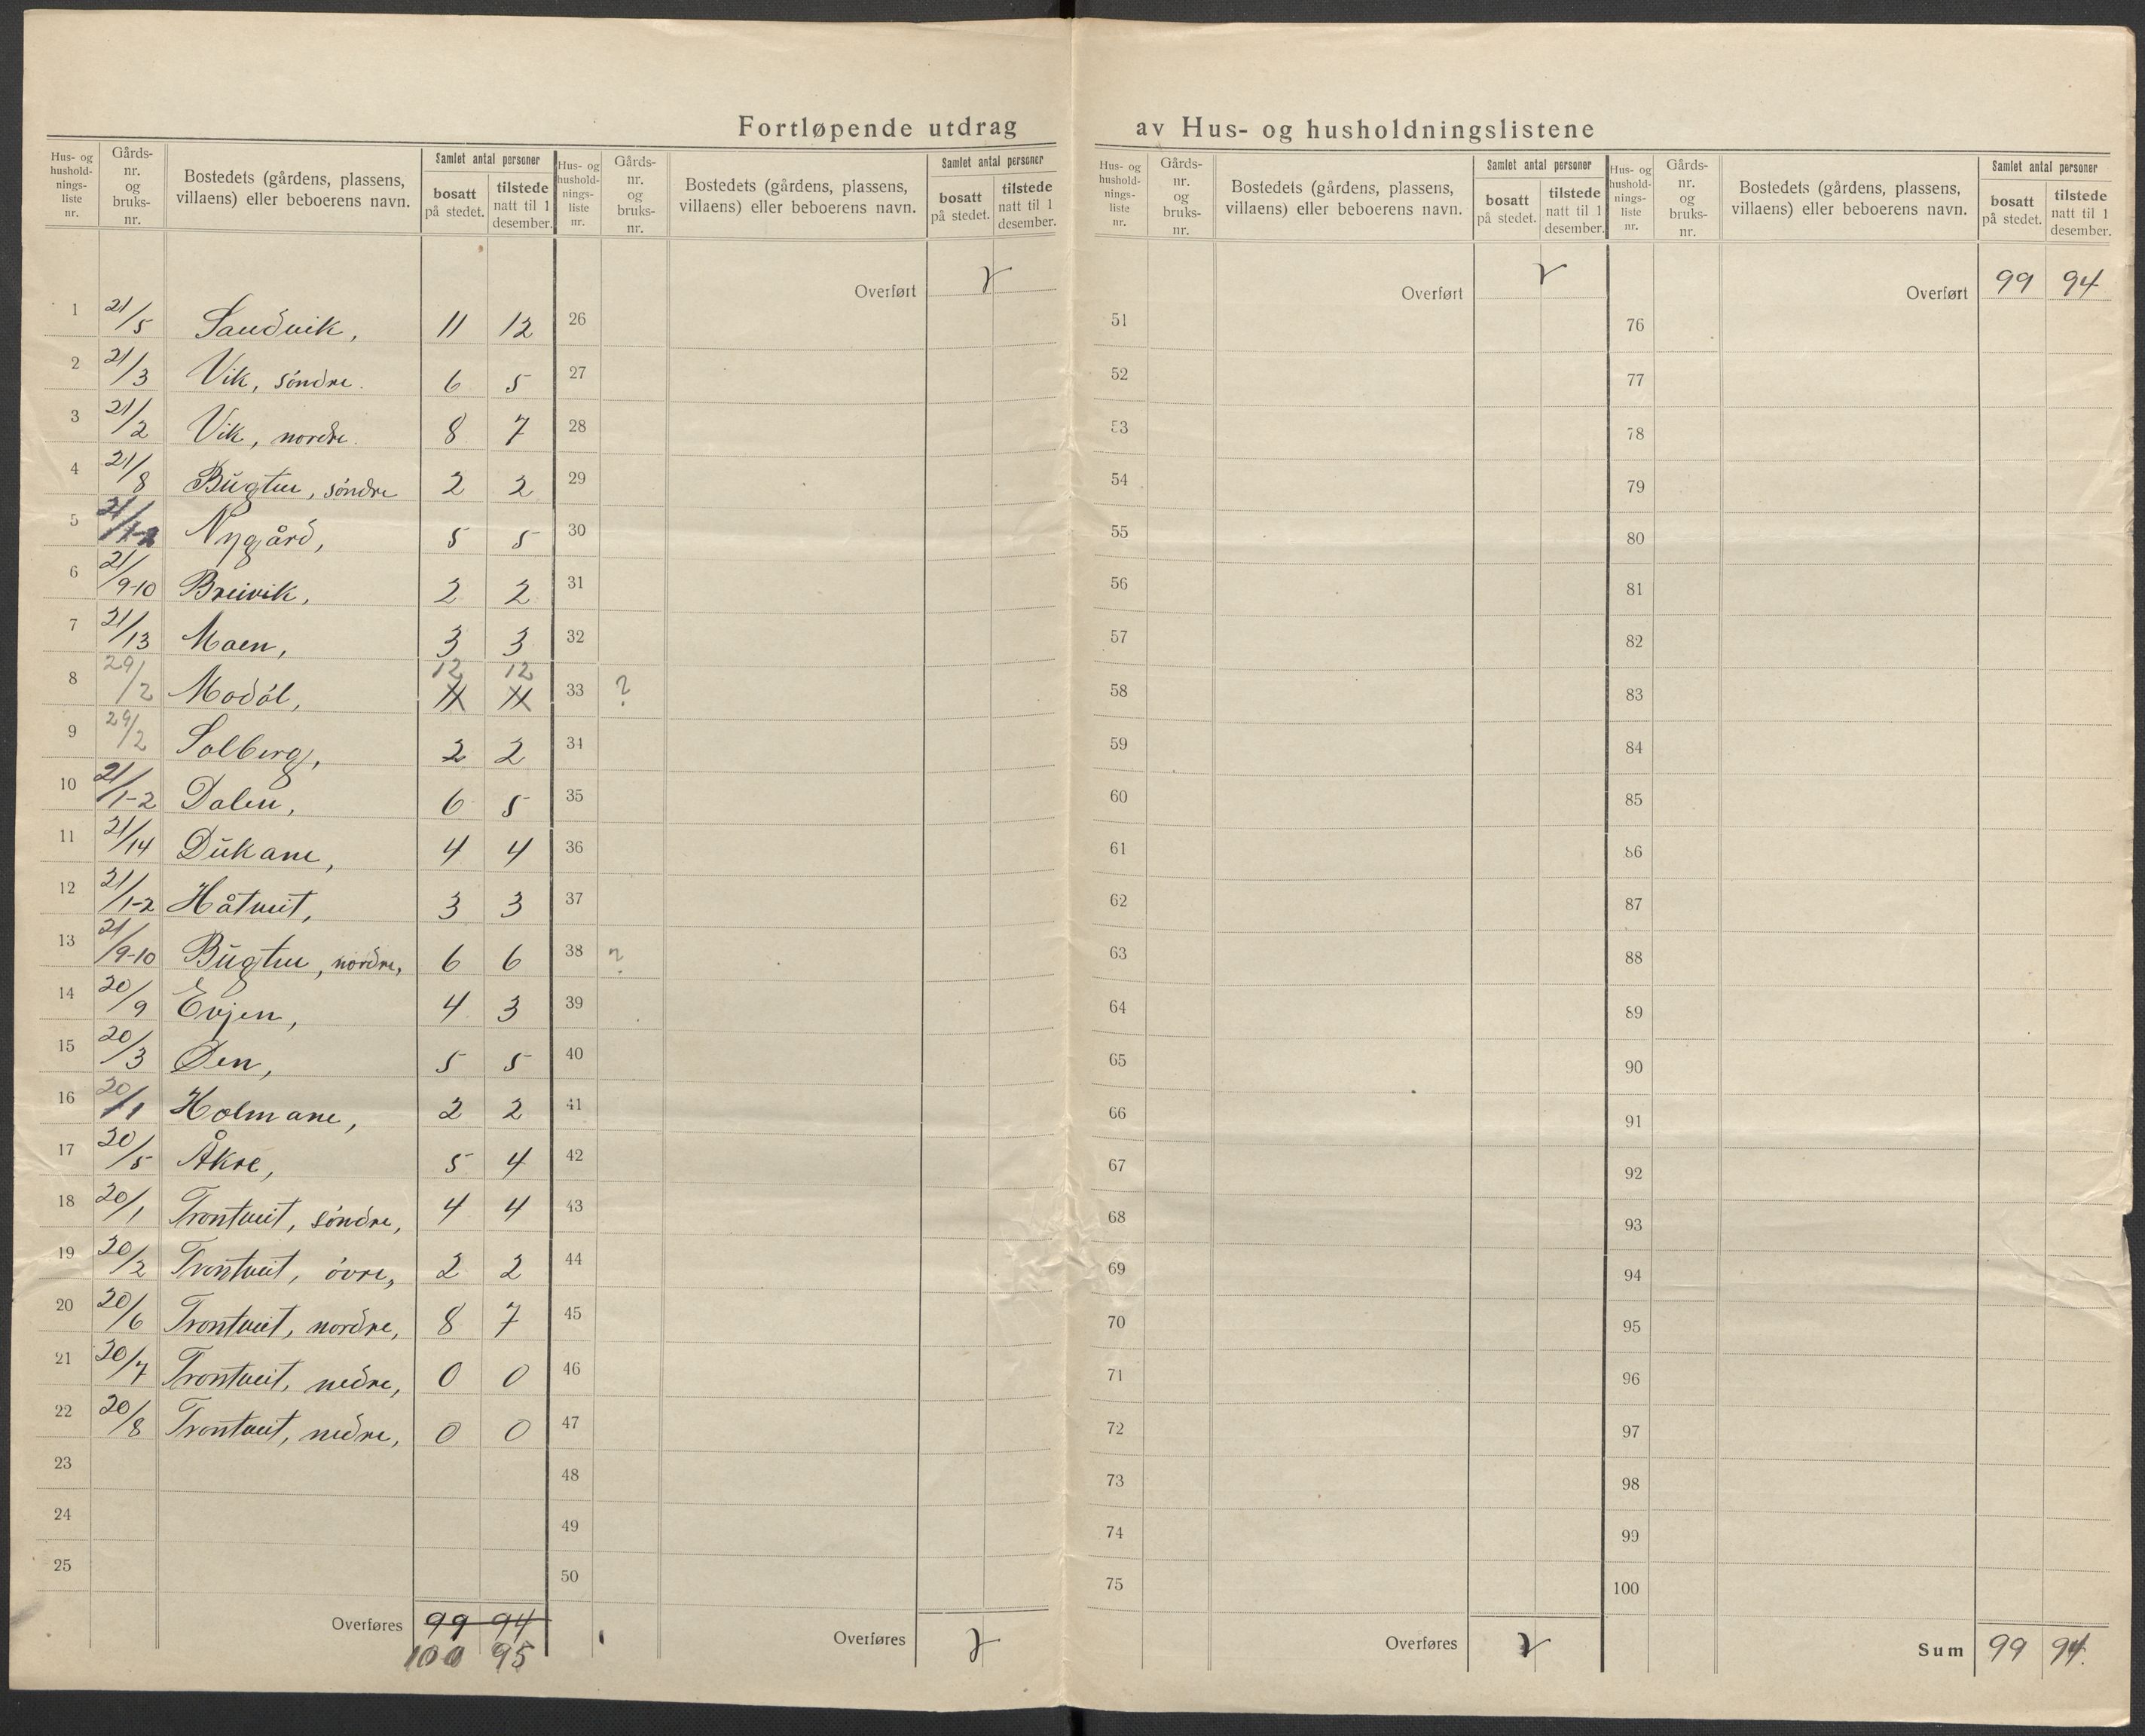 Fortløpende utdrag av Hus- og husholdningslistene
Hus- og hushold- nings- liste nr. Gårds- nr. og bruks- nr. Bostedets (gårdens, plassens, villaens) eller beboerens navn. Samlet antal personer bosatt på stedet. tilstede natt til 1 desember.
Hus- og hushold- nings- liste nr. Gårds- nr. og bruks- nr. Bostedets (gårdens, plassens, villaens) eller beboerens navn. Samlet antal personer bosatt på stedet. tilstede natt til 1 desember.
Hus- og hushold- nings- liste nr. Gårds- nr. og bruks- nr. Bostedets (gårdens, plassens, villaens) eller beboerens navn. Samlet antal personer bosatt på stedet. tilstede natt til 1 desember.
Hus- og hushold- nings- liste nr. Gårds- nr. og bruks- nr. Bostedets (gårdens, plassens, villaens) eller beboerens navn. Samlet antal personer bosatt på stedet. tilstede natt til 1 desember.
1 21/5 Sandvik, 11 12
2 21/3 Vik, söndre. 6 5
3 21/2 Vik, nordre. 8 7
4 21/8 Bugten, söndre 2 2
5 Nygård, 5 5
6 21/9-10 Breivik, 2 2
7 21/13 Moen, 3 3
12 12
8 29/2 Modål, 11 11
9 29/2 Solberg, 2 2
10 21/1-2 Dalen, 6 5
11 21/14 Dukane, 4 4
12 21/1-2 Håtveit, 3 3
13 21/9-10 Bugten, nordre, 6 6
14 20/9 Evjen, 4 3
15 20/3 Øen, 5 5
16 20/1 Holmane, 2 2
17 20/5 Åkre, 5 4
18 20/1 Trontveit, söndre, 4 4
19 20/2 Trontveit, övre, 2 2
20 20/6 Trontveit, nordre, 8 7
21 20/7 Trontveit, nedre, 0 0
22 20/8 Trontveit, nedre, 0 0
23
24
25
Overføres 99 94
100 95
Overført
26
27
28
29
30
31
32
33 ?
34
35
36
37
38 ?
39
40
41
42
43
44
45
46
47
48
49
50
Overføres
Overført
51
52
53
54
55
56
57
58
59
60
61
62
63
64
65
66
67
68
69
70
71
72
73
74
75
Overføres
Overført 99 94
76
77
78
79
80
81
82
83
84
85
86
87
88
89
90
91
92
93
94
95
96
97
98
99
100
Sum 99 94.